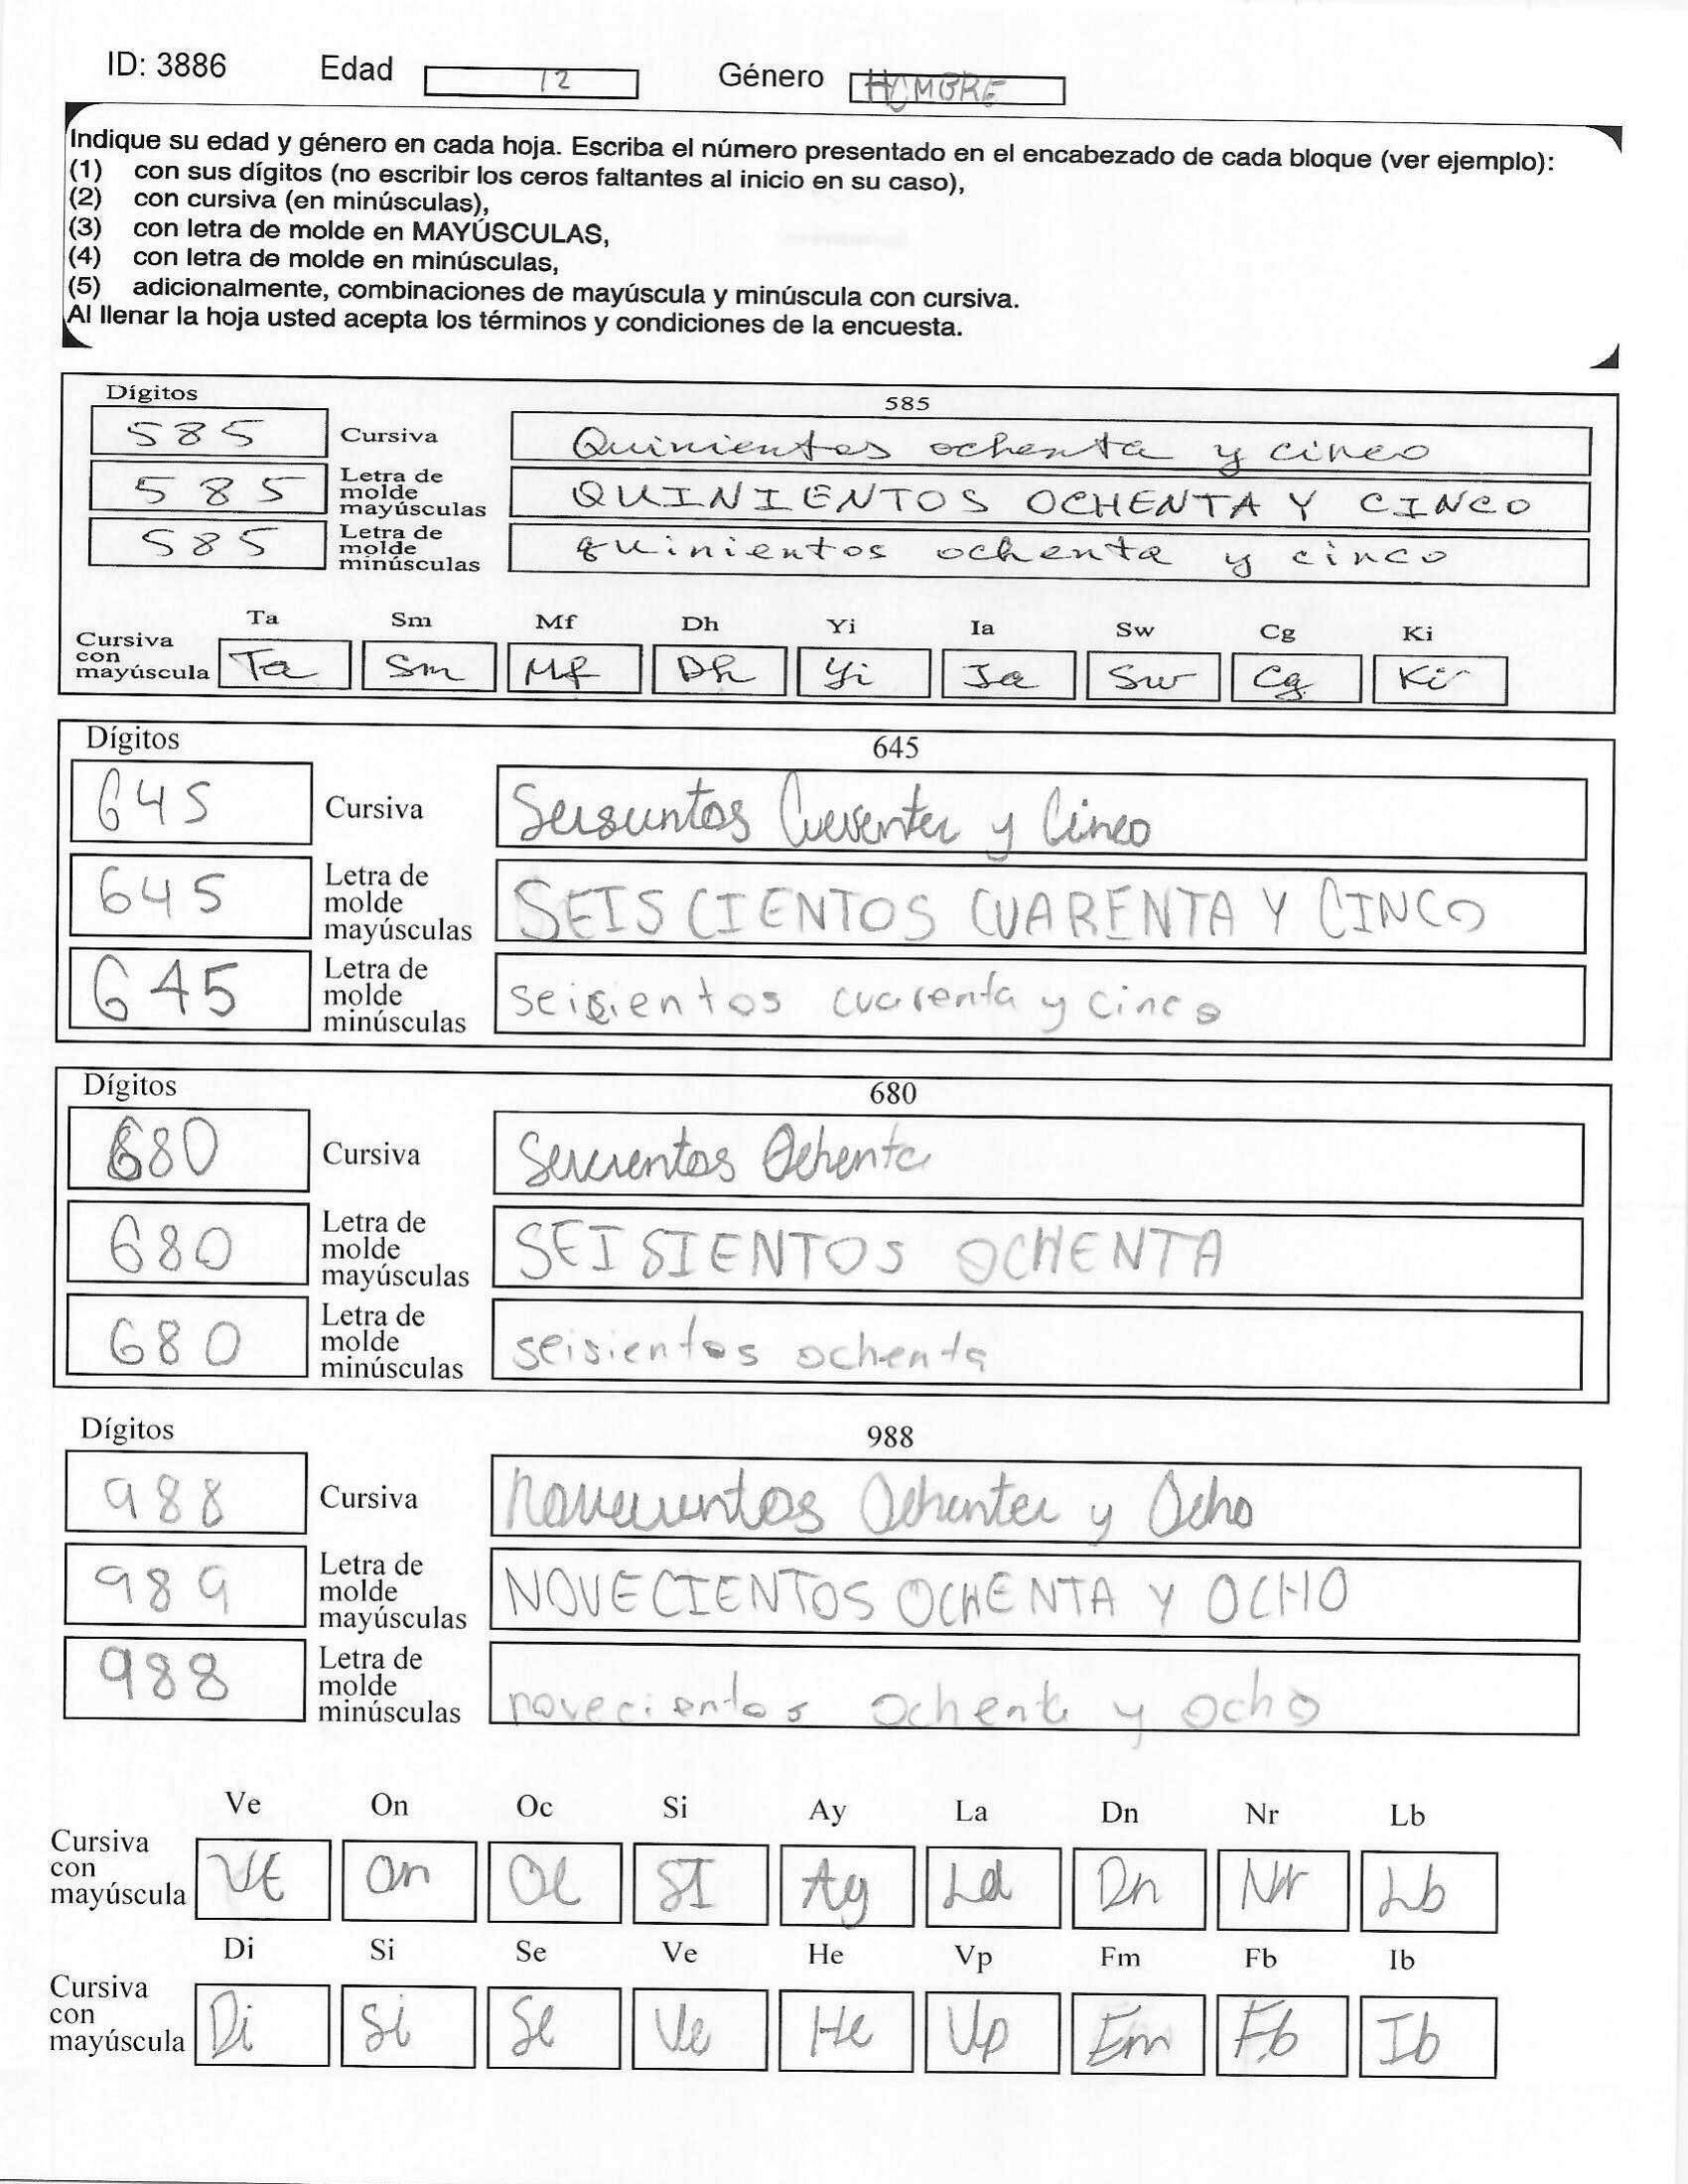 ID: 3886 Edad 12 Género HOMBRE
Indique su edad y género en cada hoja. Escriba el número presentado en el encabezado de cada bloque (ver ejemplo):
(1) con sus dígitos (no escribir los ceros faltantes al inicio en su caso),
(2) con cursiva (en minúsculas),
(3) con letra de molde en MAYÚSCULAS,
(4) con letra de molde en minúsculas,
(5) adicionalmente, combinaciones de mayúscula y minúscula con cursiva.
Al llenar la hoja usted acepta los términos y condiciones de la encuesta.
Dígitos 585
585 Cursiva Quinientos ochenta y cinco
585 Letra de molde mayúsculas QUINIENTOS OCHENTA Y CINCO
585 Letra de molde minúsculas quinientos ochenta y cinco
Ta Sm Mf Dh Yi Ia Sw Cg Ki
Cursiva con mayúscula Ta Sm Mf Dh Yi Ia Sw Cg Ki
Dígitos 645
645 Cursiva y Cinco
645 Letra de molde mayúsculas SEISCIENTOS CUARENTA Y CINCO
645 Letra de molde minúsculas seicientos cuarenta y cinco
Dígitos 680
680 Cursiva Seicientos Ochenta
680 Letra de molde mayúsculas SEISIENTOS OCHENTA
680 Letra de molde minúsculas seisientos ochenta
Dígitos 988
988 Cursiva novecientos Ochenta y Ocho
989 Letra de molde mayúsculas NOVECIENTOS OCHENTA Y OCHO
988 Letra de molde minúsculas novecientos ochenta y ocho
Ve On Oc Si Ay La Dn Nr Lb
Cursiva con mayúscula VE On Oc SI Ay La Dn Nr Lb
Di Si Se Ve He Vp Fm Fb Ib
Cursiva con mayúscula Di Si Se Ve He Vp Em Fb Ib